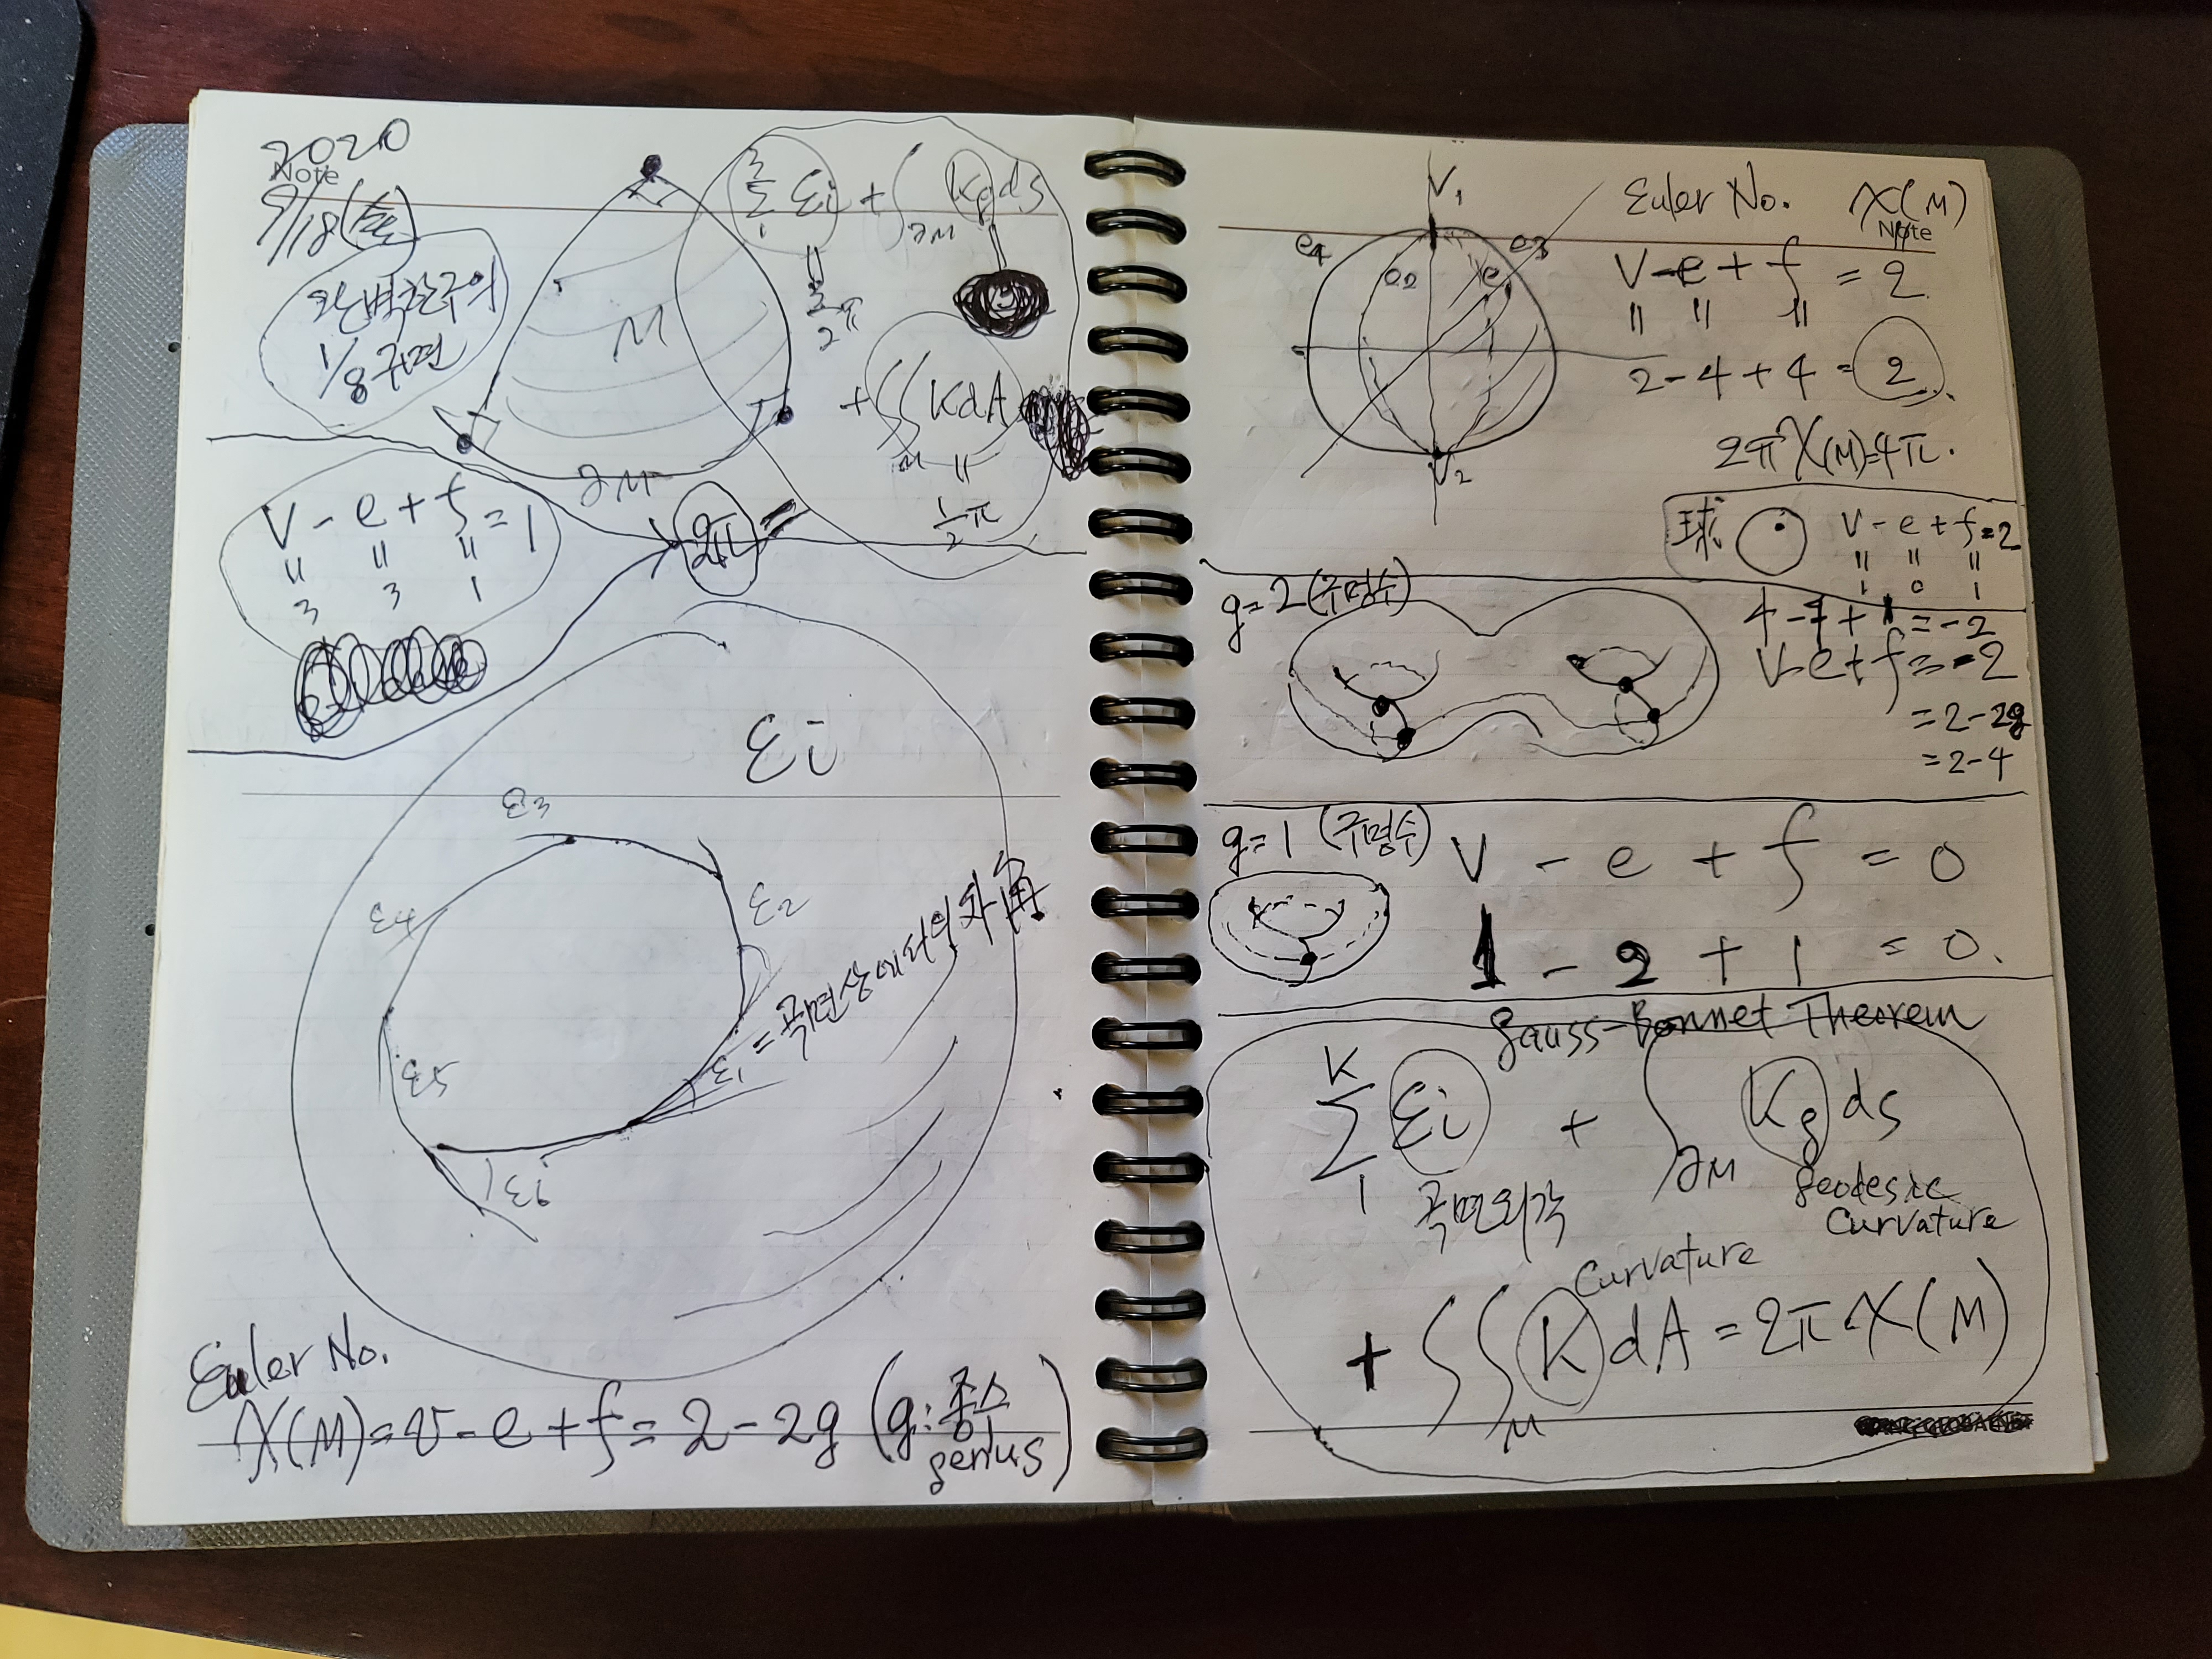 2020
Note
9/18(金)
완벽한구의
1/8구면
M
∂M
3
Σ εi + ∫ kg ds
1 ∂M
"
3/2 π
+ ∫∫ KdA
M "
1/2 π
2π =
V - e + f = 1
" " "
3 3 1
εi
ε3
ε2
ε4
ε1 = 곡면상에서의 外角
ε5
ε6
Euler No.
χ(M) = v - e + f = 2 - 2g (g: 종수
genus)
V1
e4 e2 e1 e3
V2
Euler No. χ(M)
Note
V - e + f = 2
" " "
2 - 4 + 4 = 2
2π χ(M) = 4π.
球 V - e + f = 2
" " "
1 0 1
g=2 (구멍수)
V - e + f = -2
= 2 - 2g
= 2 - 4
g=1 (구멍수)
V - e + f = 0
1 - 2 + 1 = 0.
Gauss-Bonnet Theorem
K
Σ εi + ∫ Kg ds
1 ∂M
곡면외각
geodesic
Curvature
Curvature
+ ∫∫ K dA = 2π χ(M)
M